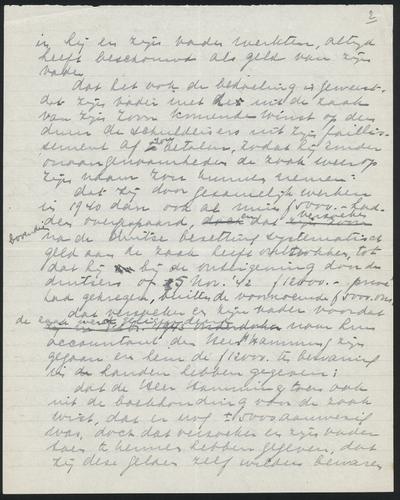 2
in hij en zijn vader werkten, altijd
heeft beschouwd als geld van zijn
vader.
dat het ook de bedoeling is geweest
dat zijn vader met de uit de zaak
van zijn zoon komende winst op den
duur de schuldeisers uit zijn faillis-
sement af zou betalen, zodat hij zonder
onaangenaamheden de zaak weer op
zijn naam zou kunnen nemen.
dat zij door gezamenlijk werken
in 1940 dan ook al ruim f 5000.- had-
den overgespaard, en dat verzoeker
bovendien na de Duitse bezetting systematisch
geld aan de zaak heeft onttrokken, tot
dat hij bij de onteigening door de
Duitsers op 25 Nov. '42 f 12000.- privé
had gekregen, buiten de voornoemde f 5000.-
dat verzoeker en zijn vader voordat
de zaak werd naar hun
accountant den Heer Hamming zijn
gegaan en hem de f 12000.- te bewaring
in de handen hebben gegeven;
dat de Heer Hamming toen ook
uit de boekhouding van de zaak
wist, dat er nog ± 5000 aanwezig
was, doch dat verzoeker en zijn vader
toen te kennen hebben gegeven, dat
zij deze gelden zelf wilden bewaren